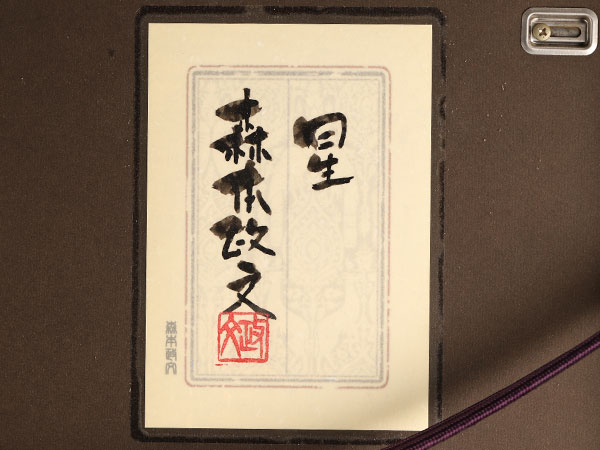 星
森本政文
政文
森本政文